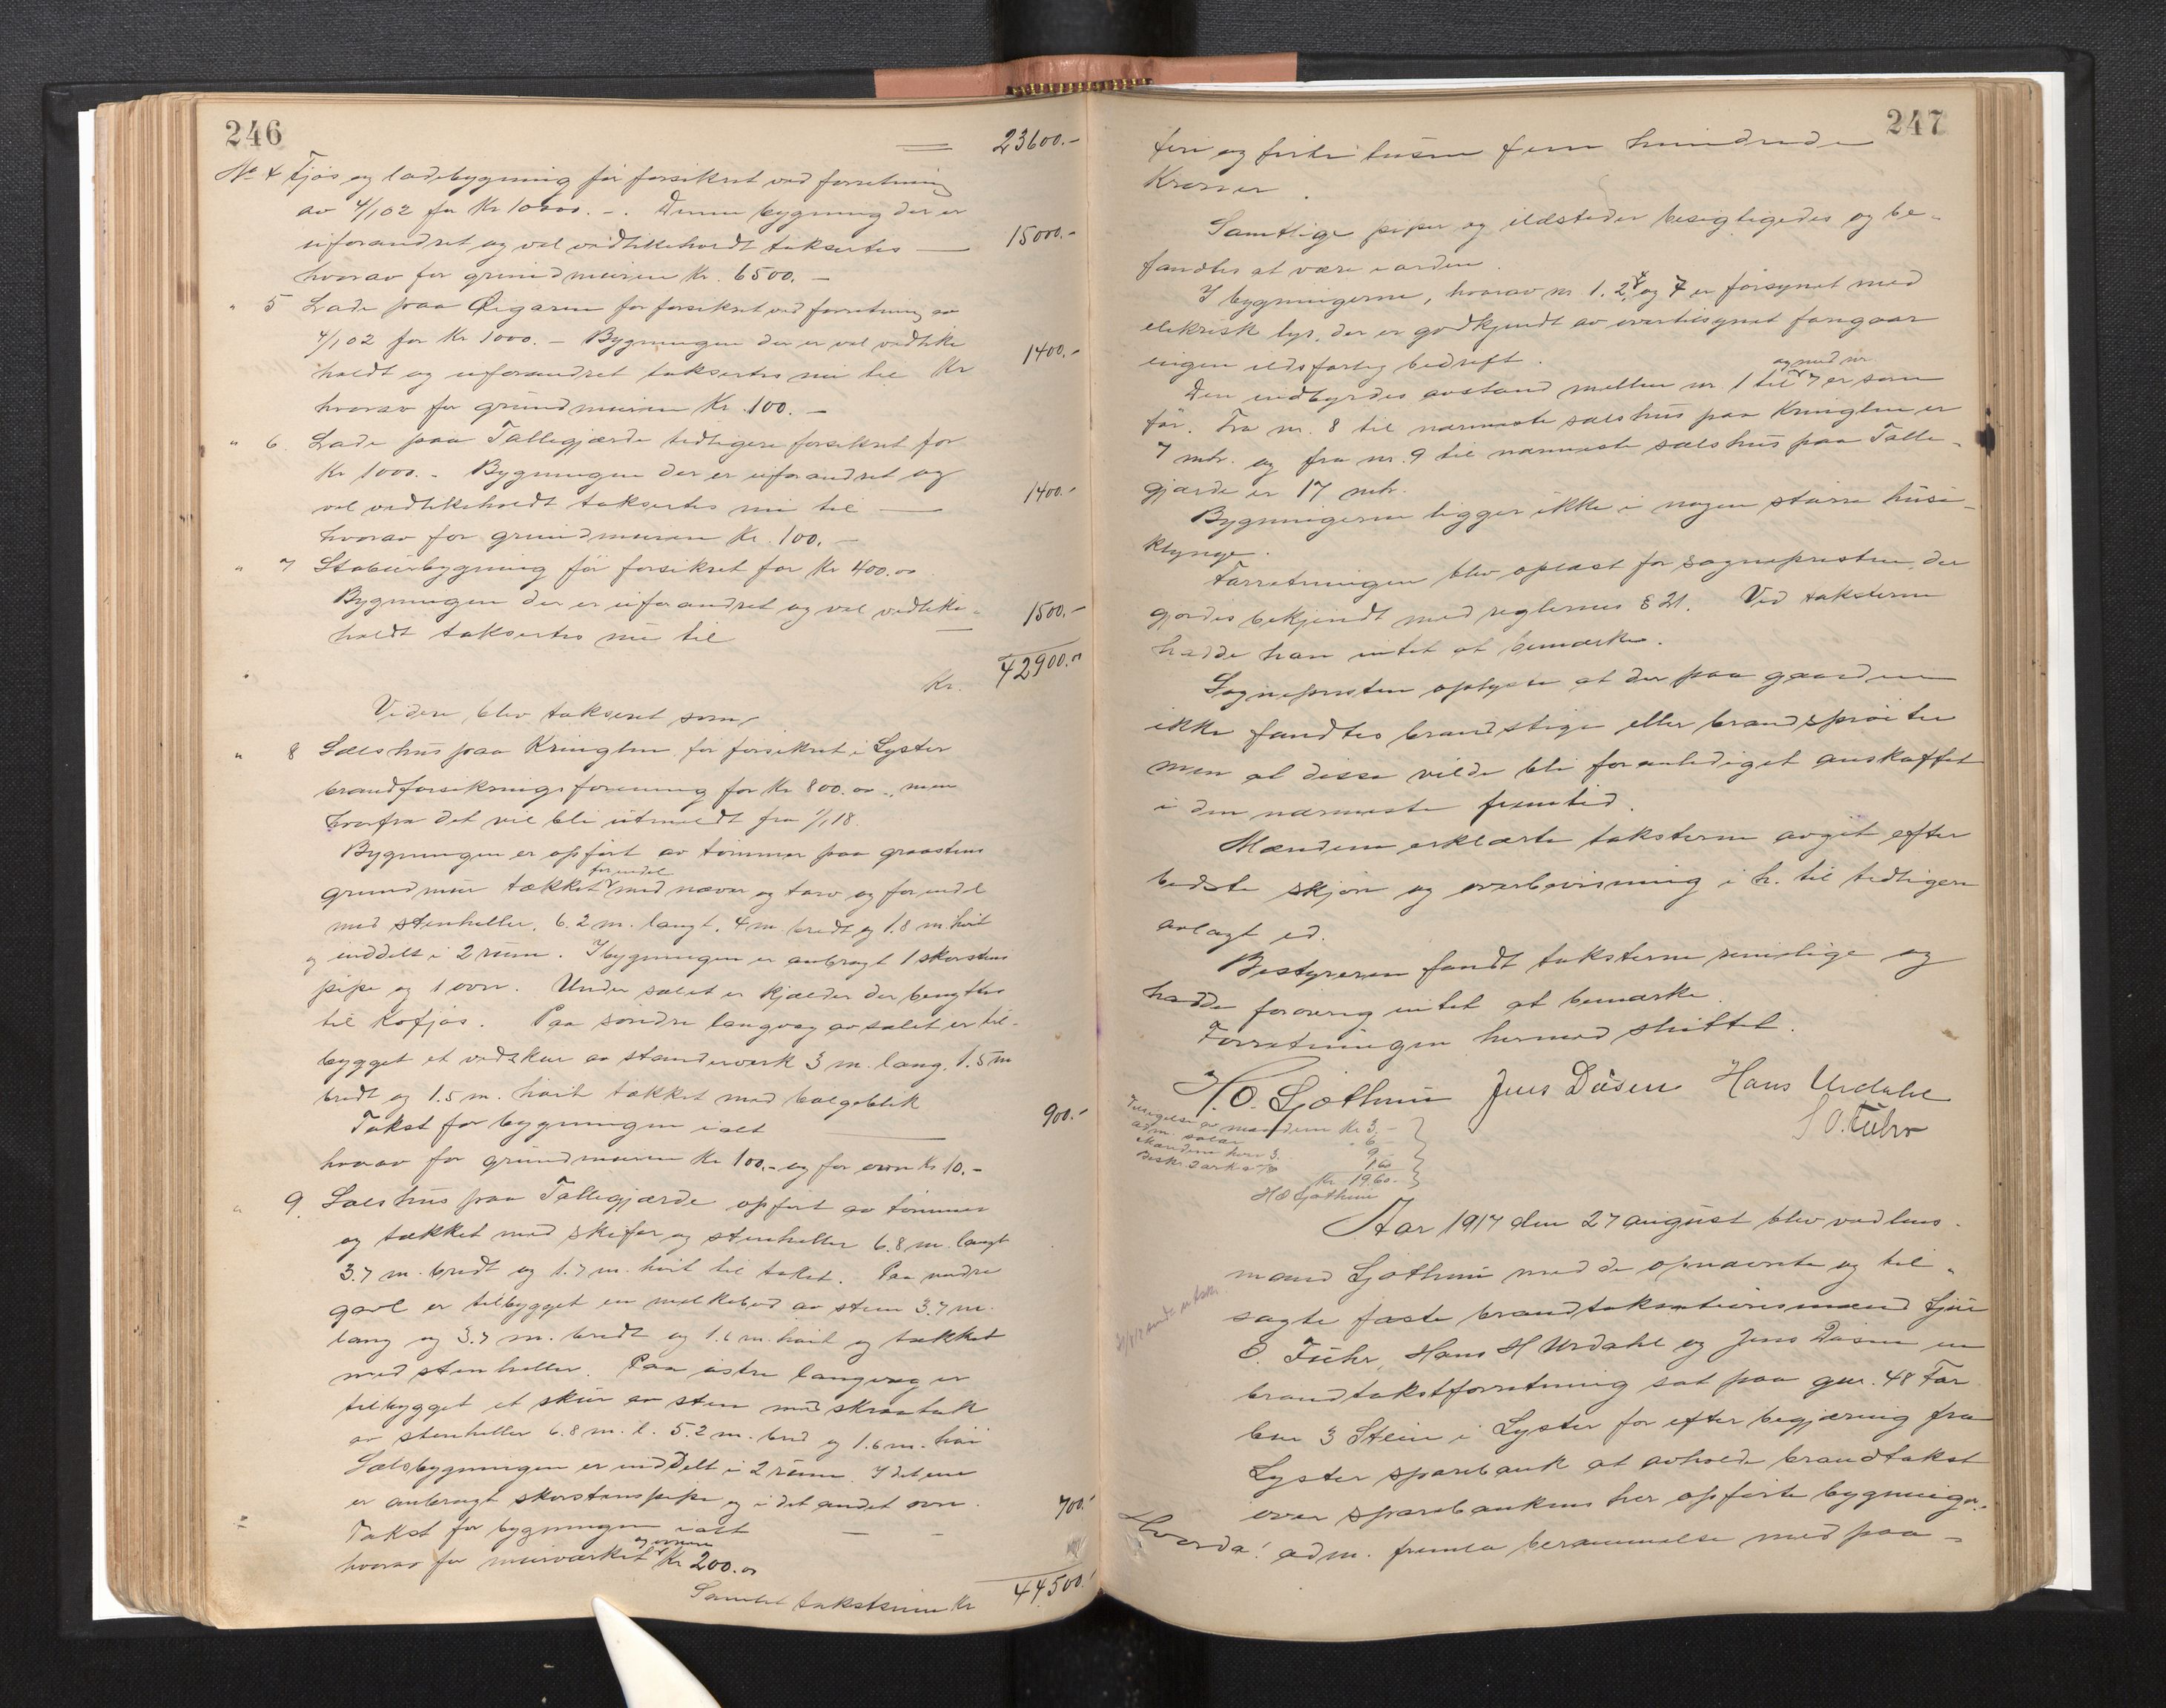 246
23600.-
No 4 Fjøs og ladebygning før forsikret ved forretning
av 4/1 02 for Kr 10000.-. Denne bygning der er
uforandret og vel vedlikeholdt taksertes — 15000.-
hvorav for grundmuren Kr. 6500.-
" 5 Lade paa Øigaren før forsikret ved forretning av
4/1 02 for Kr 1000.- Bygningen der er vel vedlike
holdt og uforandret taksertes nu til Kr 1400.-
hvorav for grundmuren Kr. 100.-
" 6. Lade paa Tallegjærde tidligere forsikret for
Kr 1000.- Bygningen der er uforandret og
vel vedlikeholdt taksertes nu til — 1400.-
hvorav for grundmuren Kr. 100.-
" 7 Stabursbygning før forsikret for Kr 400.00
Bygningen der er uforandret og vel vedlike-
holdt taksertes nu til — 1500.-
Kr. 42900.00
Videre blev taksert som
" 8 Sælshus paa Kringlen før forsikret i Lyster
brandforsikringsforening for Kr 800.00, men
hvorfra det vil bli utmeldt fra 1/1 18.
Bygningen er opført av tømmer paa graastens
for endel
grundmur tækket med næver og torv og for endel
med stenheller. 6.2 m. langt. 4 m bredt og 1.8 m. høit
og inddelt i 2 rum. I bygningen er anbragt 1 skorstens
pipe og 1 ovn. Under sælet er kjælder der benyttes
til kofjøs. Paa søndre langvæg av sælet er til-
bygget et vedskur av standerverk 3 m. lang. 1.5 m
bredt og 1.5 m. høit tækket med bølgeblik
Takst for bygningen ialt — 900.-
hvorav for grundmuren Kr 100.- og for ovn Kr 10.-
" 9. Sælshus paa Tallegjærde opført av tømmer
og tækket med skifer og stenheller 6.8 m. langt
3.7 m. bredt og 1.7 m. høit til taket. Paa nordre
gavl er tilbygget en melkebod av sten 3.7 m.
lang og 3.7 m. bredt og 1.6 m. høit og tækket
med stenheller. Paa østre langvæg er
tilbygget et skur av sten med skraatak
av stenheller 6.8 m. l. 5.2 m. bred og 1.6 m. høi
Sælsbygningen er inddelt i 2 rum. I det ene
er anbragt skorstenspipe og i det andet ovn.
Takst for bygningen ialt — - 700.-
og ovnen
hvorav for murverket Kr 200.00
Samlet takstsum Kr 44500.-
247
fire og firti tusen fem hundrede
Kroner.
Samtlige piper og ildsteder besigtigedes og be-
fandtes at være i orden.
I bygningerne, hvorav nr 1. 2, 4 og 7 er forsynet med
elektrisk lys, der er godkjendt av overtilsynet foregaar
ingen ildsfarlig bedrift.
og med nr.
Den indbyrdes avstand mellem nr 1 til 7 er som
før. Fra nr. 8 til nærmeste sælshus paa Kringlen er
7 mtr. og fra nr. 9 til nærmeste sælshus paa Talle-
gjærde er 17 mtr.
Bygningerne ligger ikke i nogen større huse-
klynge.
Forretningen blev oplæst for sognepresten, der
gjordes bekjendt med reglernes § 21. Ved taksterne
hadde han intet at bemerke.
Sognepresten oplyste at der paa gaarden
ikke fandtes brandstige eller brandsprøiter
men at disse vilde bli foranlediget anskaffet
i den nærmeste fremtid.
Mændene erklærte taksterne avgit efter
bedste skjøn og overbevisning i h. til tidligere
avlagt ed.
Bestyreren fandt taksterne rimelige og
hadde forøvrig intet at bemerke.
Forretningen hermed sluttet.
H. O. Gjøthun Jens Døsen Hans Urdahl
S O. Fuhr
Tilsigelse av mændene Kr 3.-
adm. salar " 6 -
Mændene hver 3. 9 -
1.60
Kr 19.60.-
H O Gjøthun
Aar 1917 den 27 august blev ved lens-
mand Gjøthun med de opnævnte og til-
sagte faste brandtakstationsmænd Sjur
O. Fuhr, Hans H Urdahl og Jens Døsen en
brandtakstforretning sat paa gnr. 48 For
bnr 3 Stein i Lyster for efter begjæring fra
Lyster sparebank at avholde brandtakst
over sparebankens her opførte bygninger.
Hvorda! adm. fremla berammelse med paa-